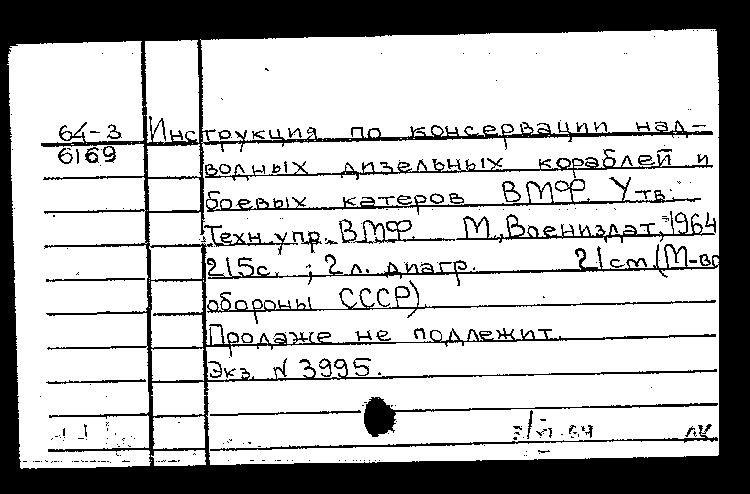 64-3 Инструкция по консервации над-
6169 водных дизельных кораблей и
боевых катеров ВМФ. Утв.
Техн. упр. ВМФ. М., Воениздат, 1964
215с. ; 2 л. диагр. 21 см. (М-во
обороны СССР)
Продаже не подлежит.
Экз. № 3995.